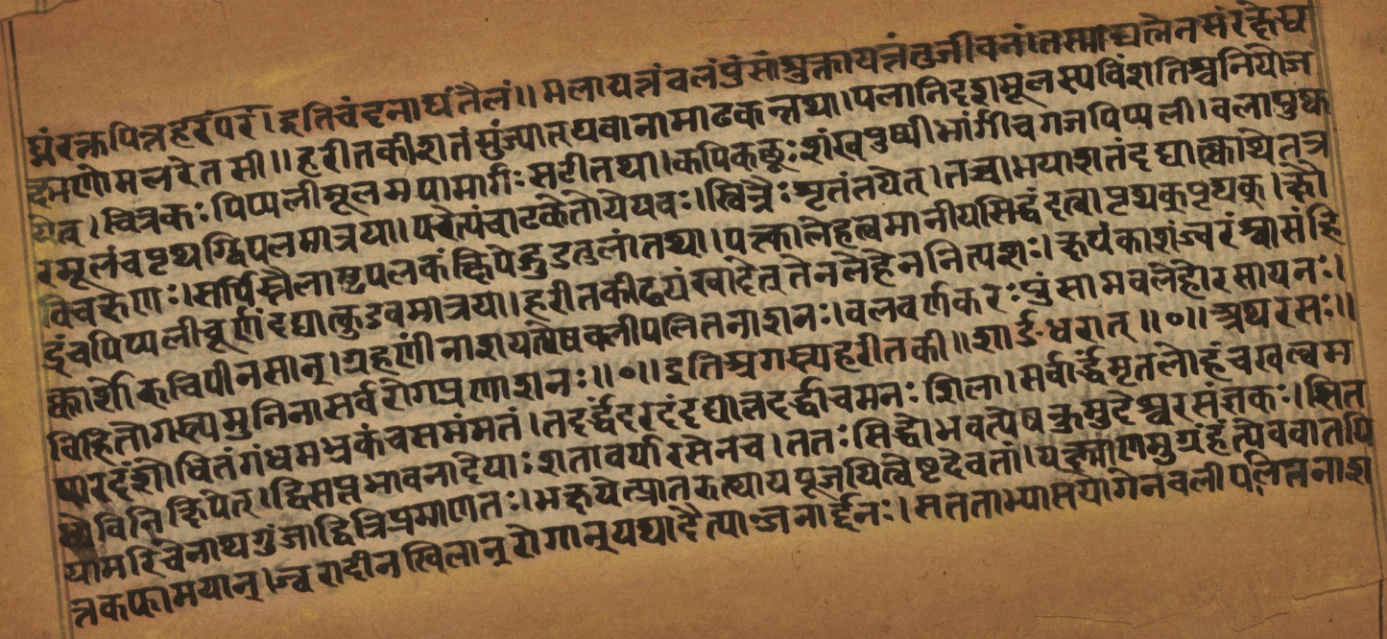 घ्नंरक्तपित्तहरंपरं।इतिचंदनाद्यंतैलं॥मलायत्तंवलंपुंसांशुक्रायत्तंतुजीवनं।तस्माद्यत्नेनसंरक्षेद्य
क्ष्मणोमलरेतसी॥हरीतकीशतंभुंज्यात्यवानामाढकन्तथा।पलानिदशमूलस्यविंशतिश्चनियोज
येत्।चित्रकःपिप्पलीमूलमपामार्गःसटीतथा।कपिकछूःशंखपुष्पीभांर्गीचगजपिप्पली।वलापुष्क
रमूलंचपृथग्द्विपलमात्रया।पचेत्पंचाढकेतोयेयवैःस्विन्नैःशृतंनयेत्।तच्चाभयाशतंदद्यात्क्वाथेतत्र
विचक्षणः।सर्पिस्तैलाष्टपलकंक्षिपेद्गुडतुलांतथा।पक्त्वालेहत्वमानीयसिद्धंदत्वापृथक्पृथक्।क्षौ
द्रंचपिप्पलीचूर्णंदद्यात्कुडवमात्रया।हरीतकीद्वयंखादेत्तेनलेहेननित्यशः।क्षयंकाशंज्वरंश्वासंहि
क्कार्शोरुचिपीनसान्।ग्रहणींनाशयत्येषवलीपलितनाशनः।वलवर्णकरःपुंसामवलेहोरसायनः।
विहितोगस्त्यमुनिनासर्वरोगप्रणाशनः॥०॥इतिअगस्त्यहरीतकी॥शार्ङ्गधरात्॥०॥अथरसः॥
पारदंशोधितंगंधमभ्रकंचसमंमतं।तदर्द्धंदरदंदद्यात्तदर्द्धाचमनःशिला।सर्वार्द्धंमृतलोहंचखल्वम
ध्येविनिक्षिपेत्।द्विसप्तभावनादेयाःशतावर्यारसेनच।ततःसिद्धोभवत्येषकुमुदेश्वरसंज्ञकः।सित
यामरिचेनाथगुंजाद्वित्रिप्रमाणतः।भक्षयेत्प्रातरुत्थायपूजयित्वेष्टदेवतां।यक्ष्माणमुग्रंहंत्येववातपि
त्तकफामयान्।ज्वरादीनखिलान्रोगान्यथादैत्याञ्जनार्द्दनः।सतताभ्यासयोगेनवलीपलितनाश